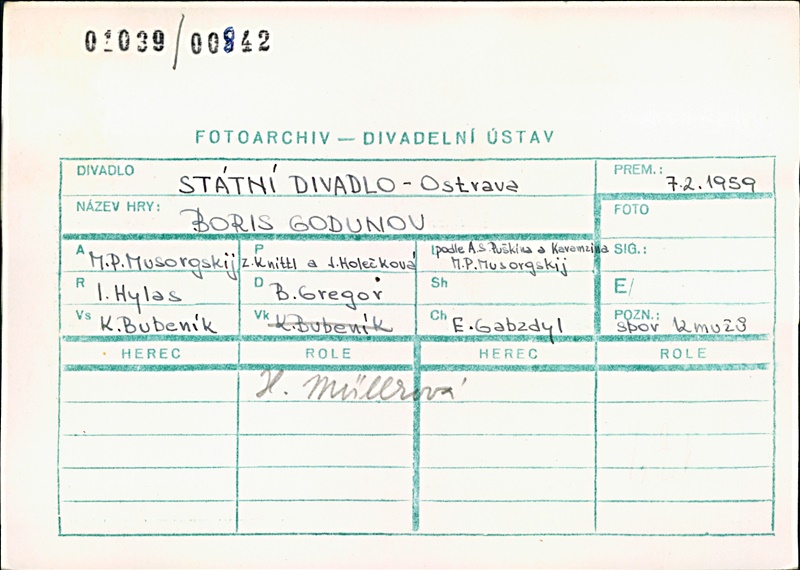 01039/00842
FOTOARCHIV — DIVADELNÍ ÚSTAV
DIVADLO STÁTNÍ DIVADLO - Ostrava
PREM.: 7.2.1959
NÁZEV HRY: BORIS GODUNOV
FOTO
A M.P.Musorgskij
P Z.Knittl a J.Holečková
L podle A.S.Puškina a Karamzina
M.P.Musorgskij
SIG.:
R I.Hylas
D B.Gregor
Sh
E/
Vs K.Bubeník
Vk K.Bubeník
Ch E.Gabzdyl
POZN.:
sbor
HEREC ROLE HEREC ROLE
H. Müllerová